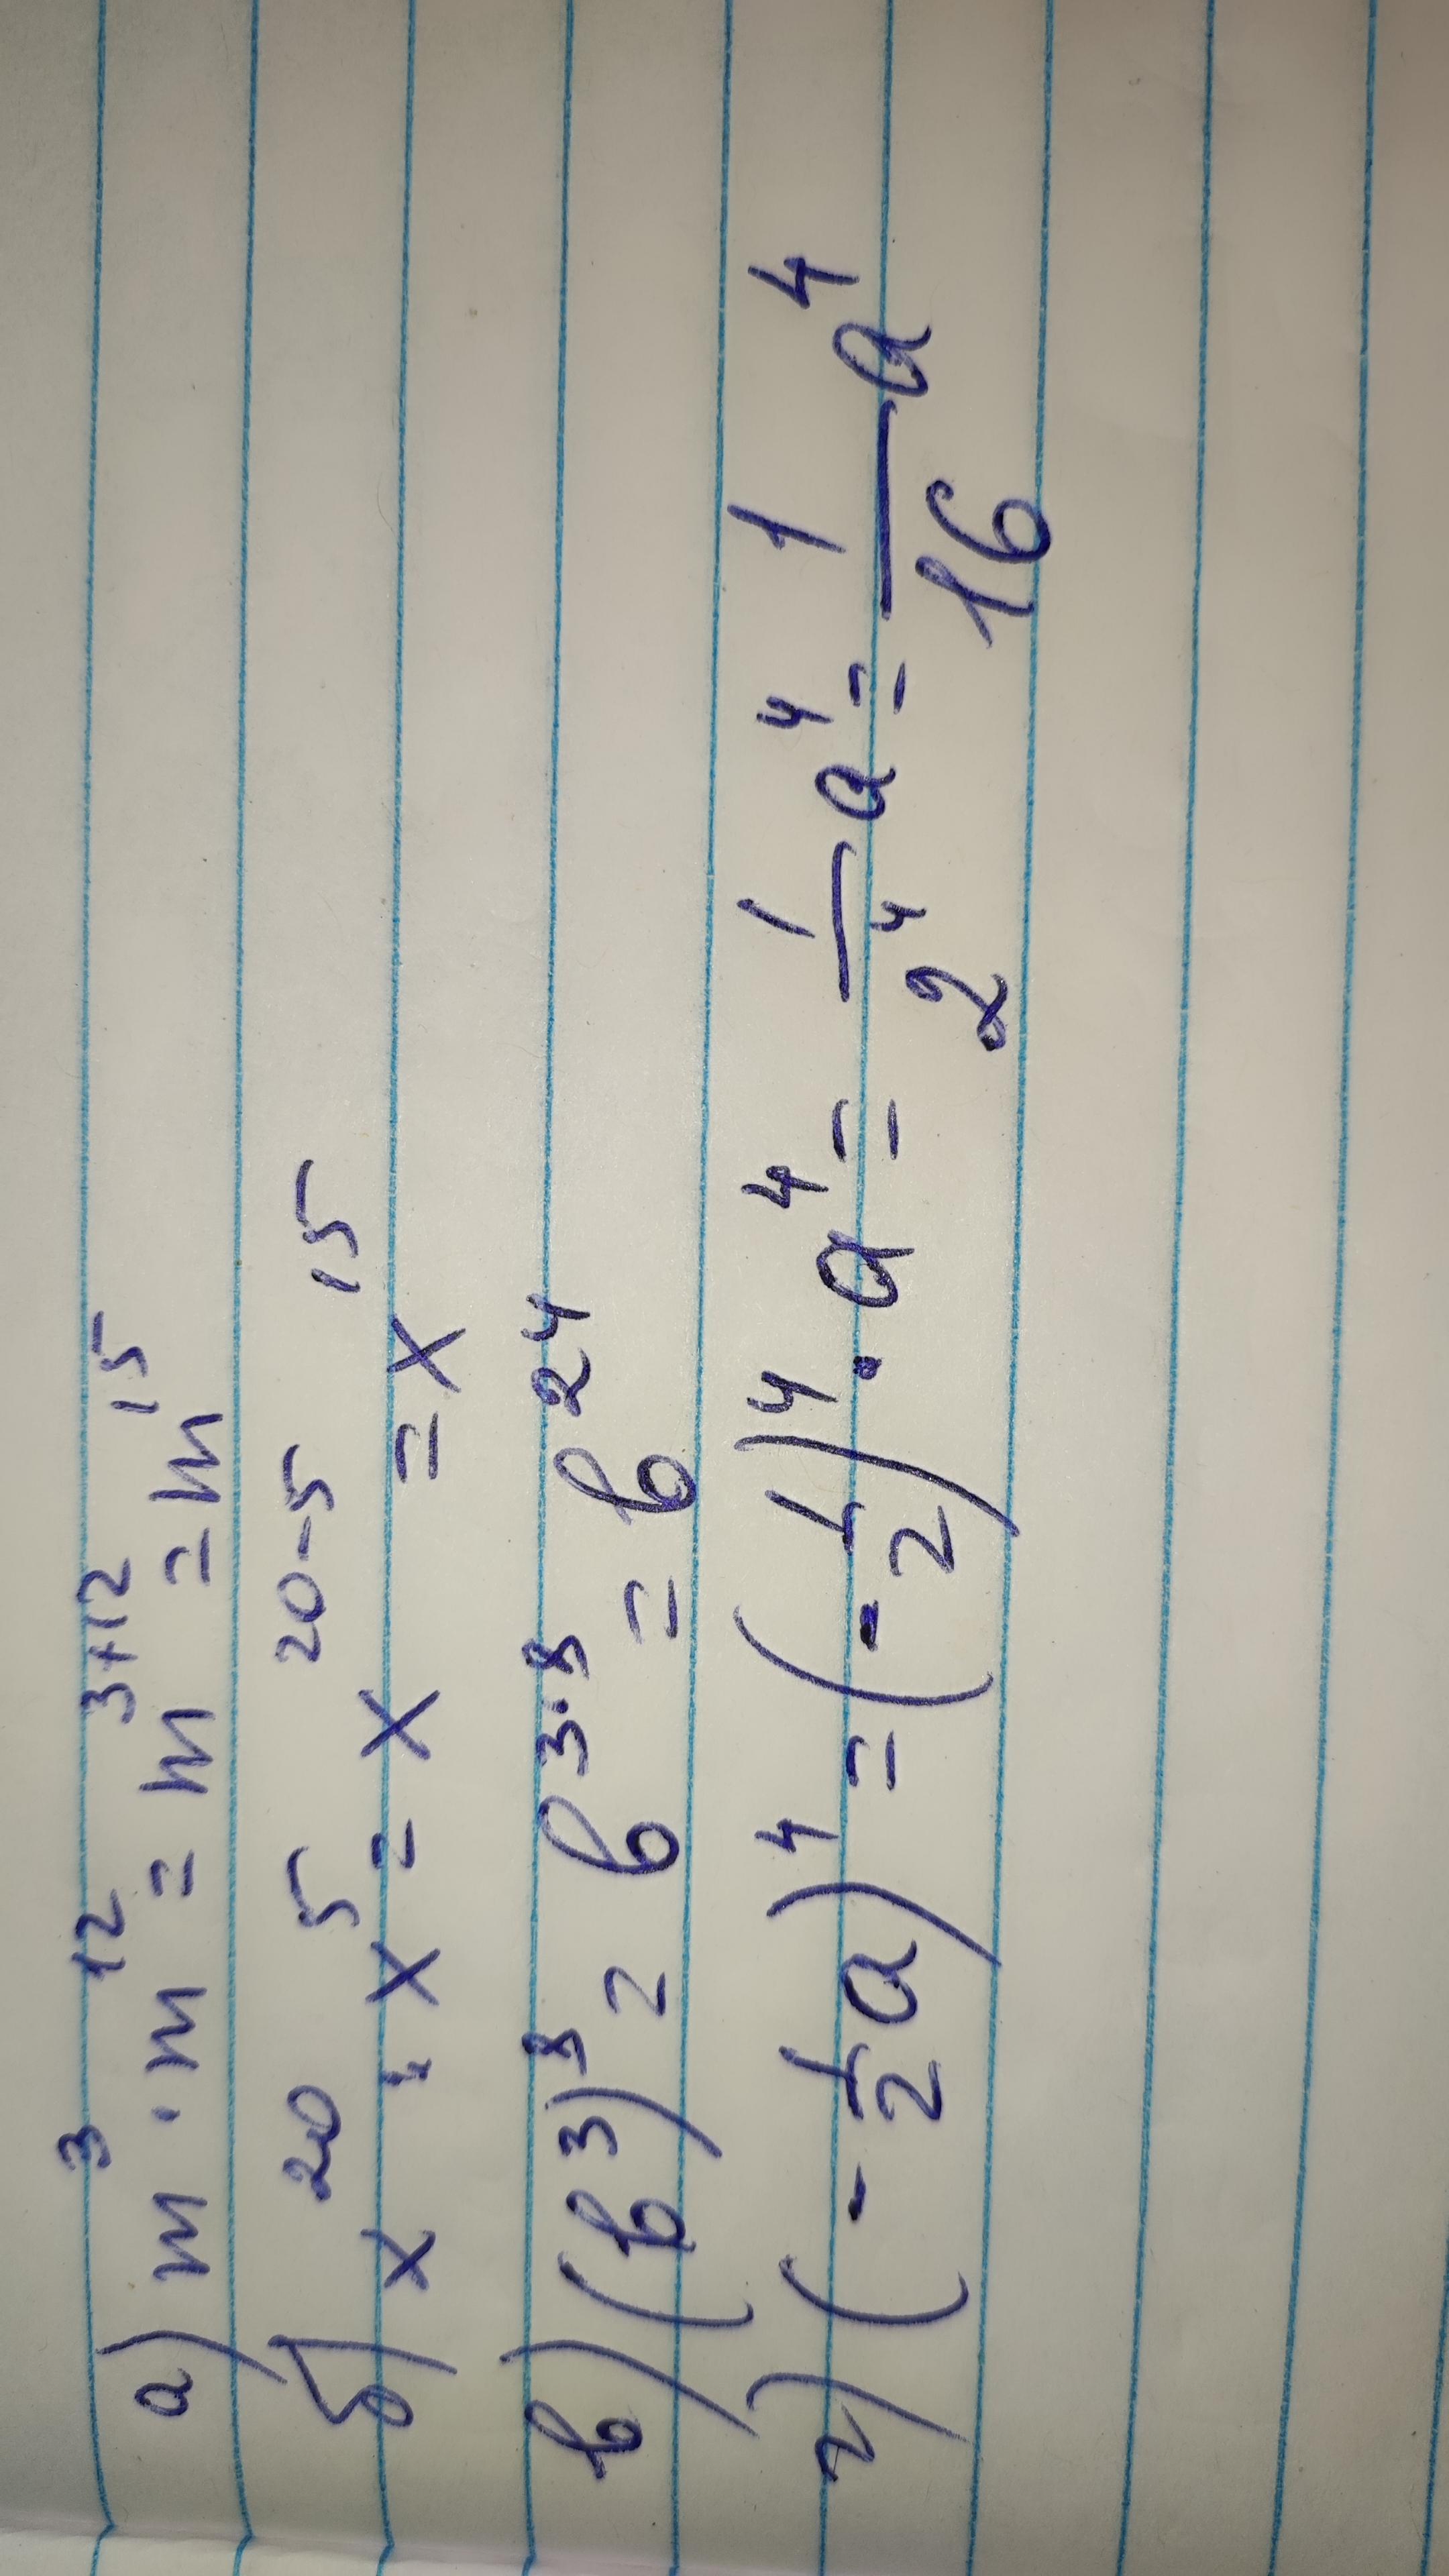 а) m³ · m¹² = m³⁺¹² = m¹⁵
б) x²⁰ : x⁵ = x²⁰⁻⁵ = x¹⁵
в) (b³)⁸ = b³·⁸ = b²⁴
г) (-1/2 a)⁴ = (-1/2)⁴ · a⁴ = 1/2⁴ a⁴ = 1/16 a⁴